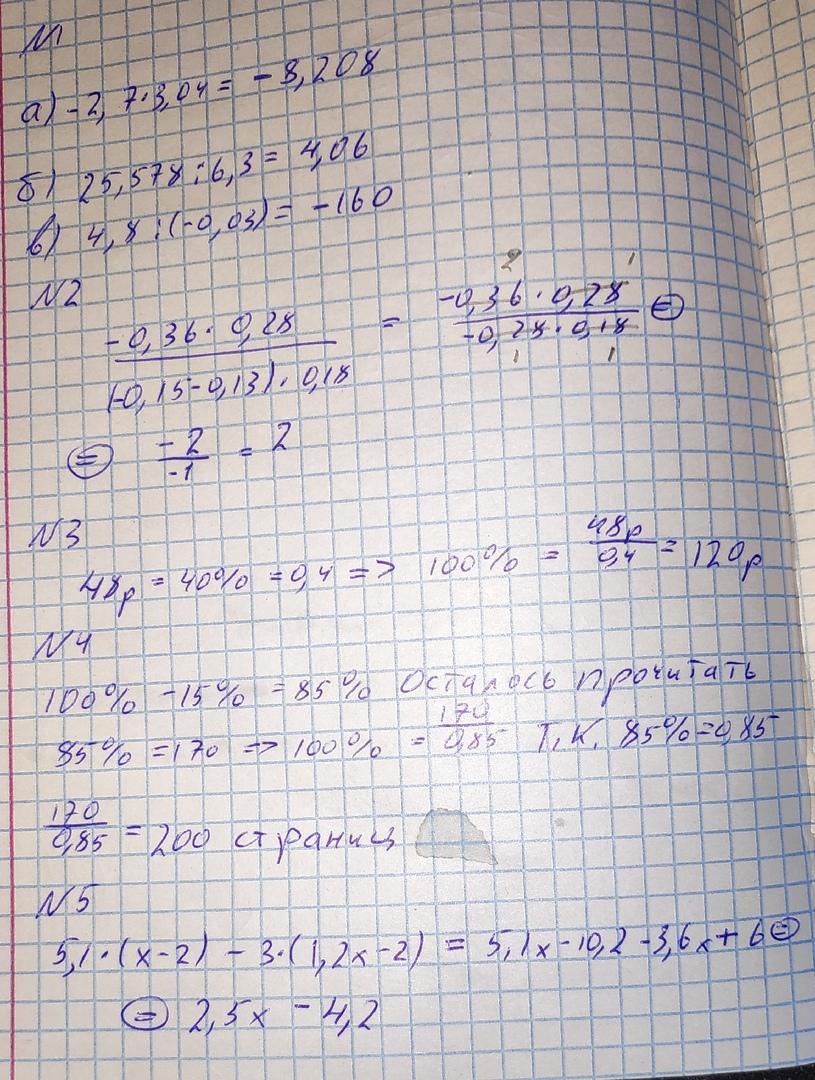 N1
а) -2,7·3,04 = -8,208
б) 25,578 : 6,3 = 4,06
в) 4,8 : (-0,03) = -160
N2
-0,36·0,28 / (-0,15-0,13)·0,18 = -0,36·0,28 / -0,28·0,18 =
2 1
1 1
= -2 / -1 = 2
N3
48р = 40% = 0,4 => 100% = 48р / 0,4 = 120р
N4
100% - 15% = 85% Осталось прочитать
85% = 170 => 100% = 170 / 0,85 т.к. 85% = 0,85
170 / 0,85 = 200 страниц
N5
5,1·(х-2) - 3·(1,2х-2) = 5,1х - 10,2 - 3,6х + 6 =
= 2,5х - 4,2